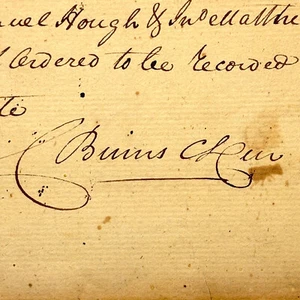 uel Hough & Jno Matthe
Ordered to be Recorded
te
C Binns C Cur